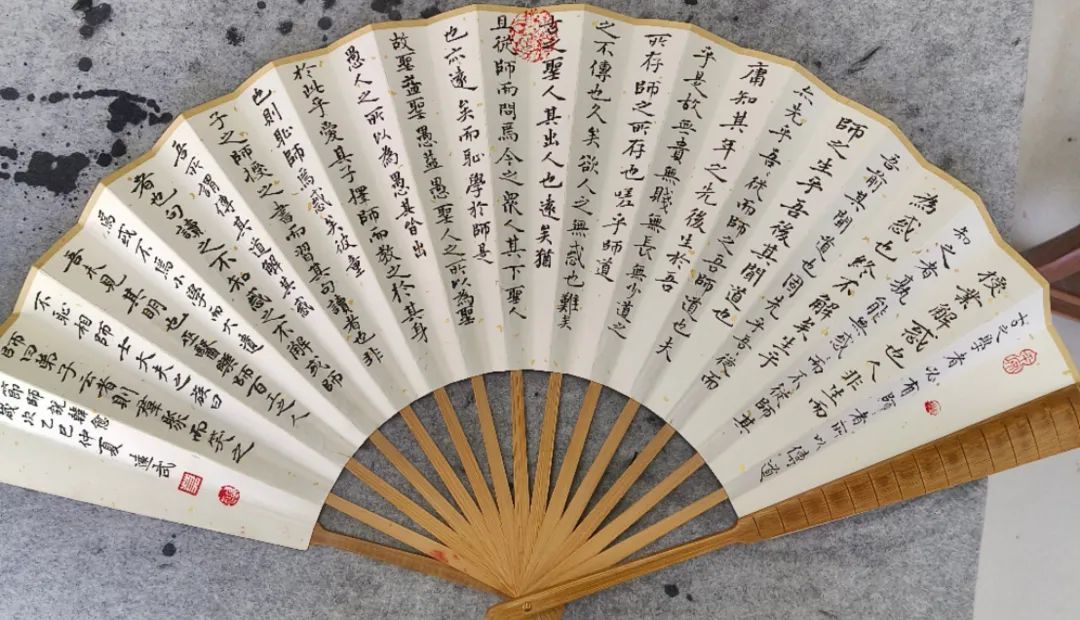 古之學者必有師者所以傳道
授業解惑也人非生而
知之者孰能無惑而不從師其
為惑也終不解矣生乎
吾前其聞道也固先乎吾從而
師之生乎吾後其聞道也
亦先乎吾從而師之吾師道也夫
庸知其年之先後生於吾
乎是故無貴無賤無長無少道之
所存師之所存也嗟乎師道
之不傳也久矣欲人之無惑也難矣
古之聖人其出人也遠矣猶
且從師而問焉今之眾人其下聖人
也亦遠矣而恥學於師是
故聖益聖愚益愚聖人之所以為聖
愚人之所以為愚其皆出
於此乎愛其子擇師而教之於其身
也則恥師焉惑矣彼童
子之師授之書而習其句讀者也非
吾所謂傳其道解其惑
者也句讀之不知惑之不解或師
焉或不焉小學而大遺
吾未見其明也巫醫樂師百工之人
不恥相師士大夫之族曰
師曰弟子云者則群聚而笑之
節師說韓愈
歲次乙巳仲夏